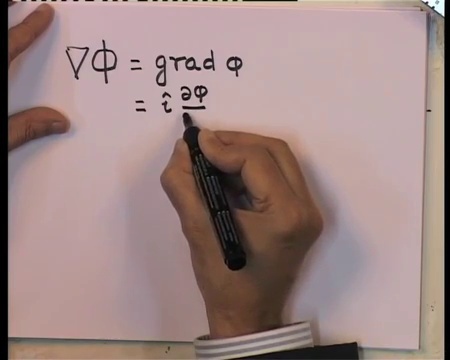 ∇Φ = grad φ
= î ∂φ